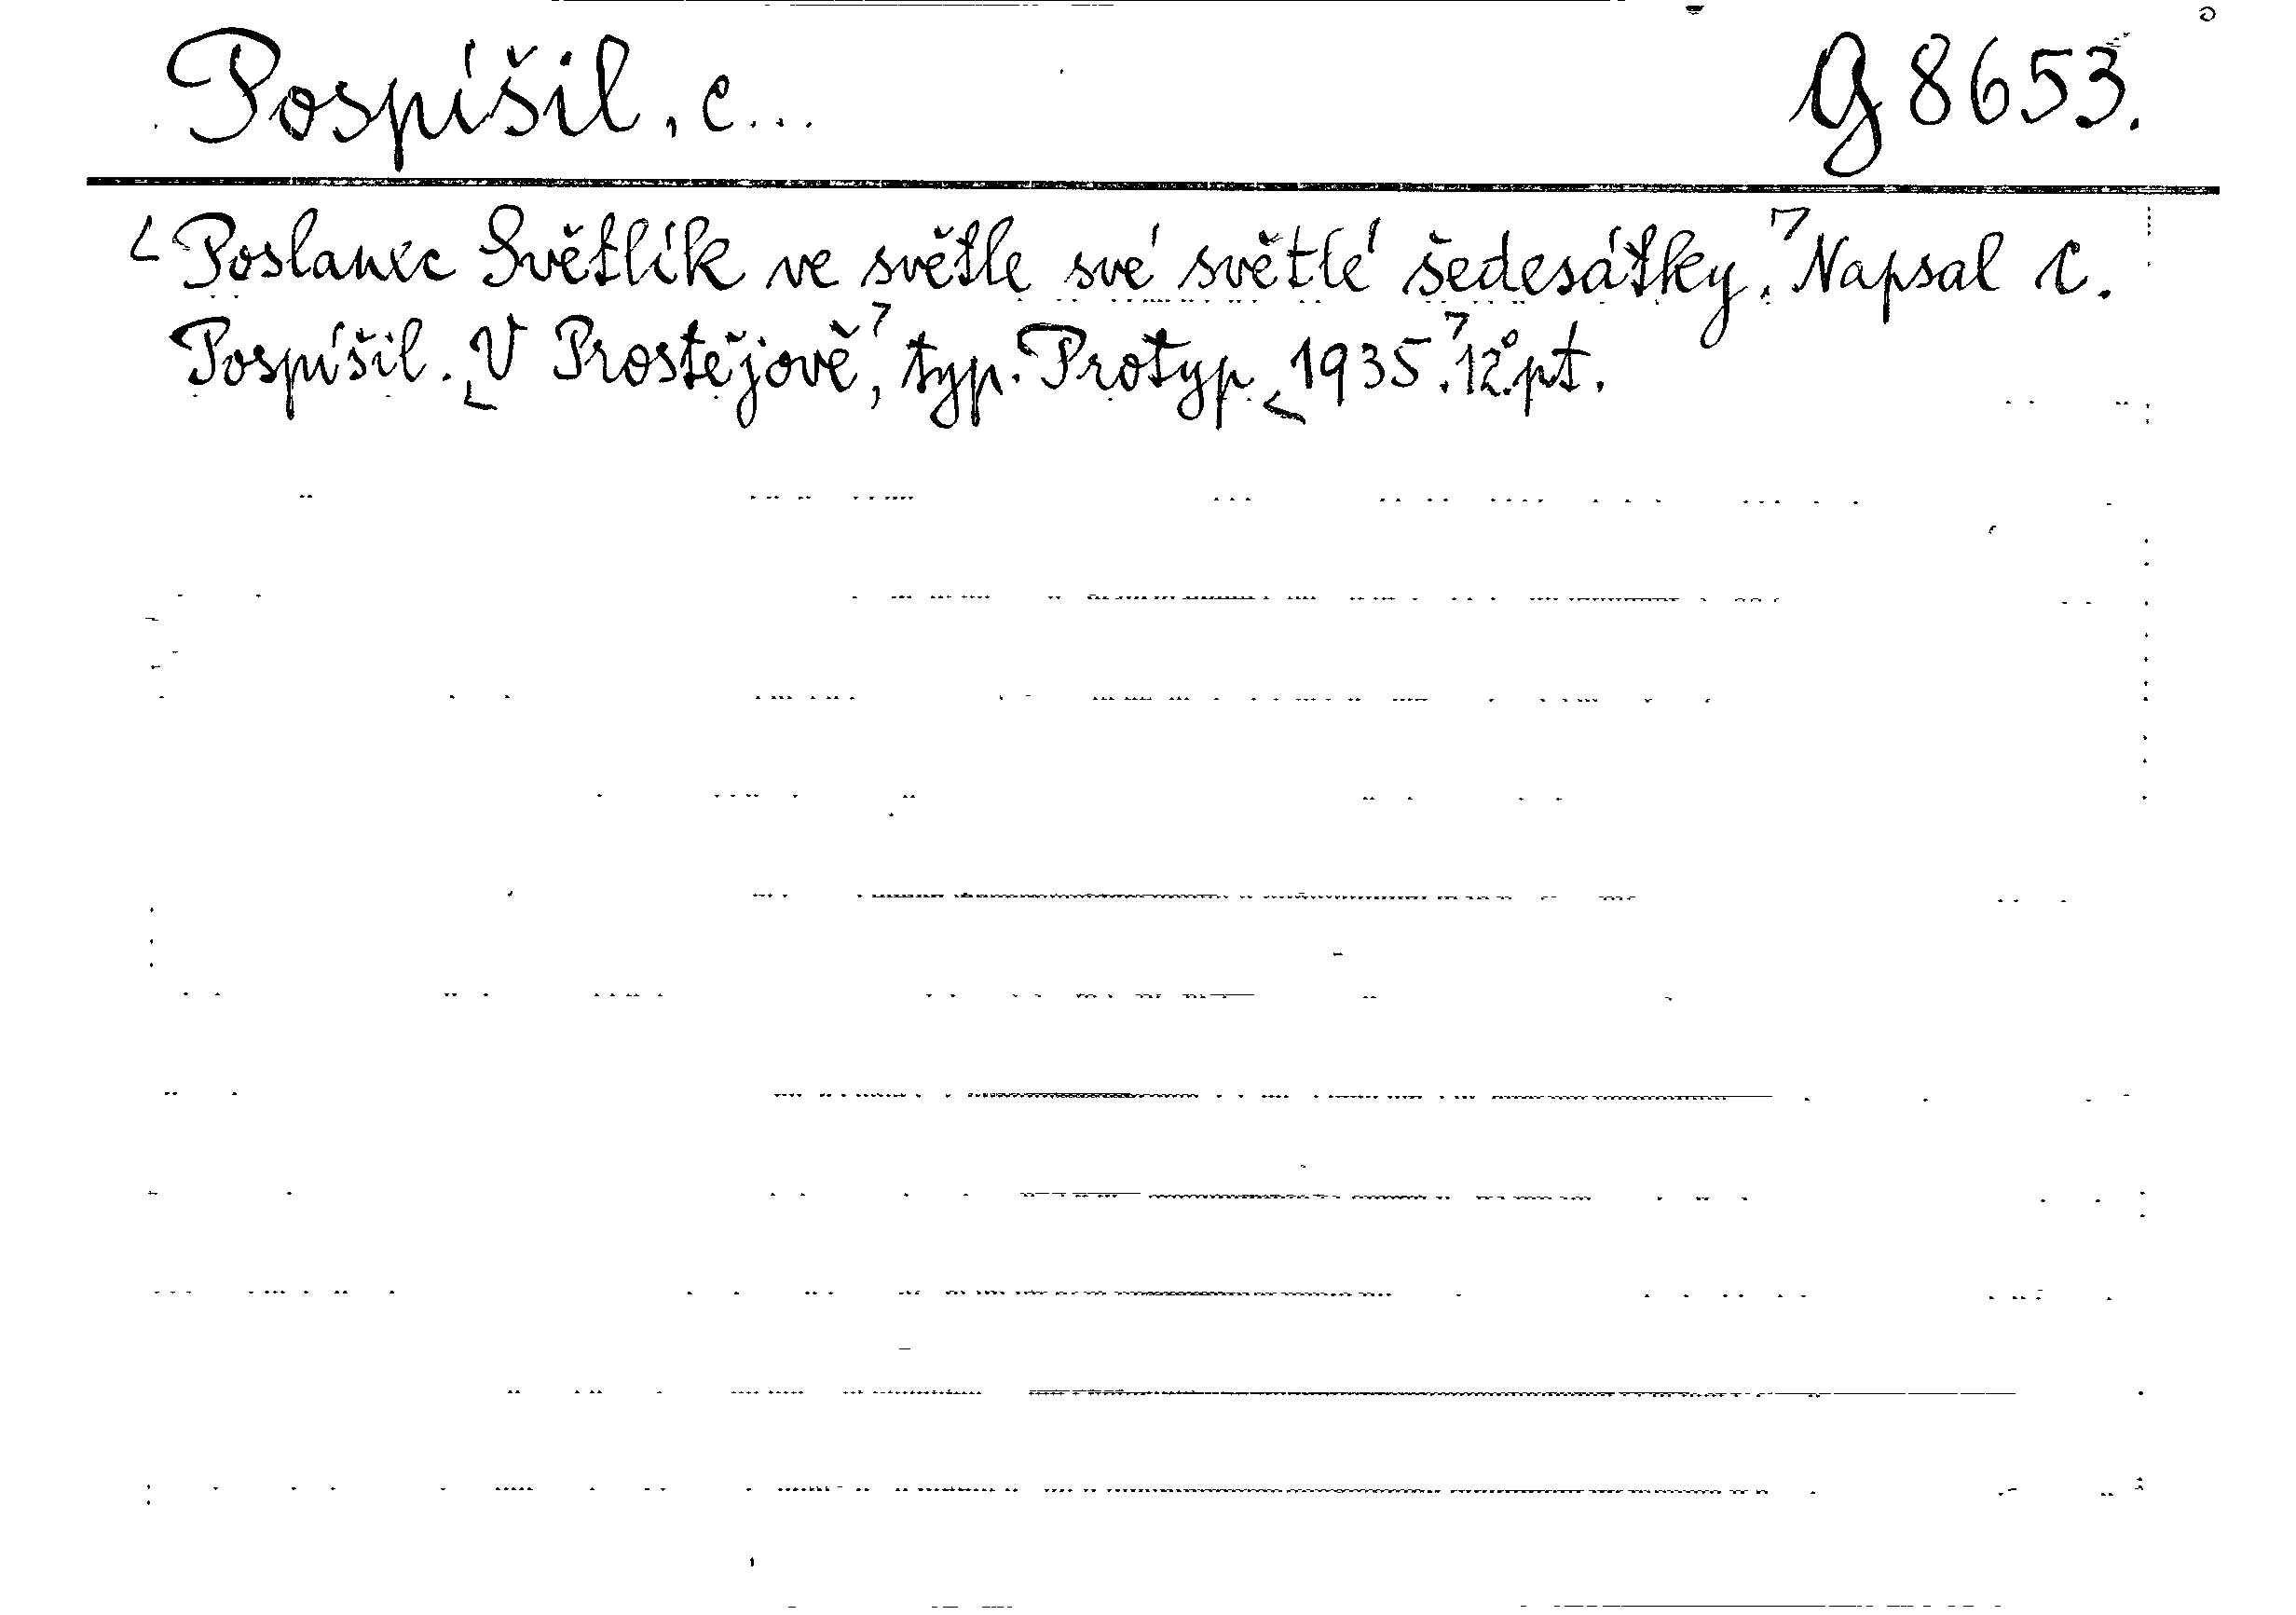 Pospíšil, c... G 8653.
Poslanec Světlík ve světle své světlé šedesátky. Napsal c.
Pospíšil. V Prostějově, typ. Protyp 1935. 12°. pt.